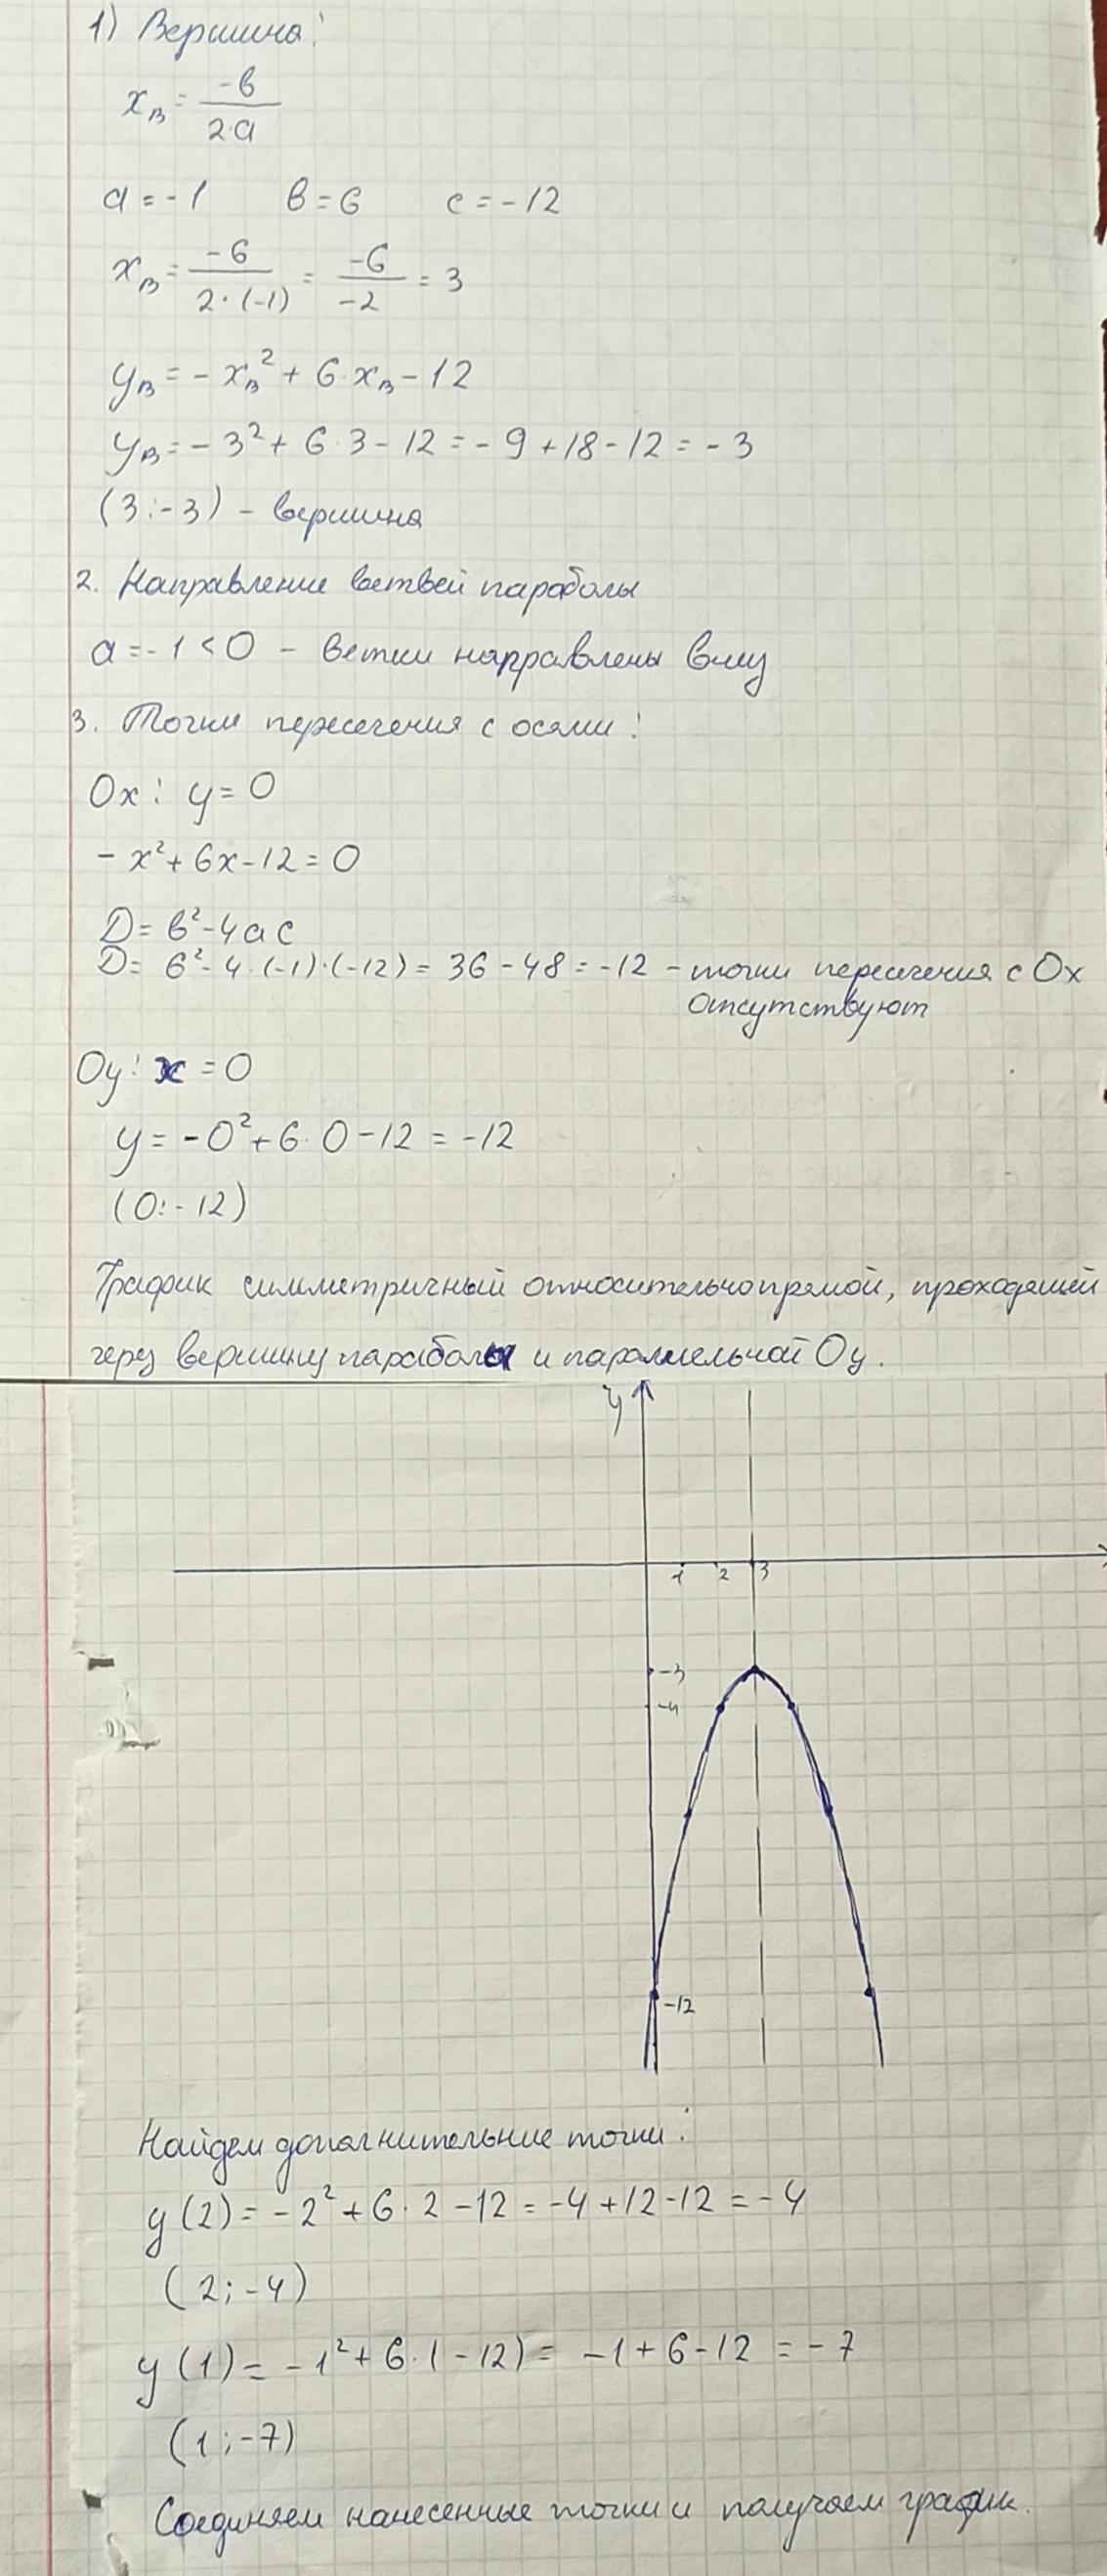 1) Вершина:
xв = -b / 2a
a = -1 b = 6 c = -12
xв = -6 / 2·(-1) = -6 / -2 = 3
yв = - xв² + 6·xв - 12
yв = - 3² + 6·3 - 12 = - 9 + 18 - 12 = - 3
(3:-3) - вершина
2. Направление ветвей параболы
a = -1 < 0 - ветки направлены вниз
3. Точки пересечения с осями:
Ox: y = 0
- x² + 6x - 12 = 0
D = b² - 4ac
D = 6² - 4·(-1)·(-12) = 36 - 48 = -12 - точки пересечения с Ox
отсутствуют
Oy: x = 0
y = -0² + 6·0 - 12 = -12
(0:-12)
График симметричный относительно прямой, проходящей
через вершину параболы и параллельной Oy.
y
1 2 3
-3
-4
-12
Найдем дополнительние точки:
y(2) = -2² + 6·2 - 12 = -4 + 12 - 12 = -4
(2;-4)
y(1) = -1² + 6·(-12) = -1 + 6 - 12 = -7
(1;-7)
Соединяем нанесенные точки и получаем график.